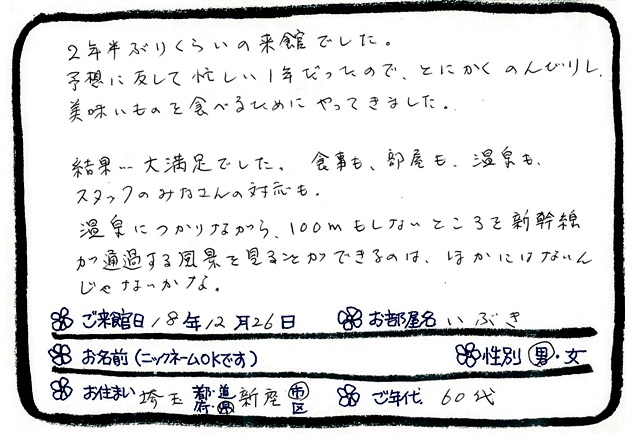 2年半ぶりくらいの来館でした。
予想に反して忙しい1年だったので、とにかくのんびりし、
美味いものを食べるためにやってきました。
結果…大満足でした。 食事も、部屋も、温泉も、
スタッフのみなさんの対応も。
温泉につかりながら、100mもしないところを新幹線
が通過する風景を見ることができるのは、ほかにはないん
じゃないかな。
ご来館日 18年12月26日 お部屋名 いぶき
お名前(ニックネームOKです) 性別 男・女
お住まい 埼玉 都・道・府・県 新座 市・区 ご年代 60代